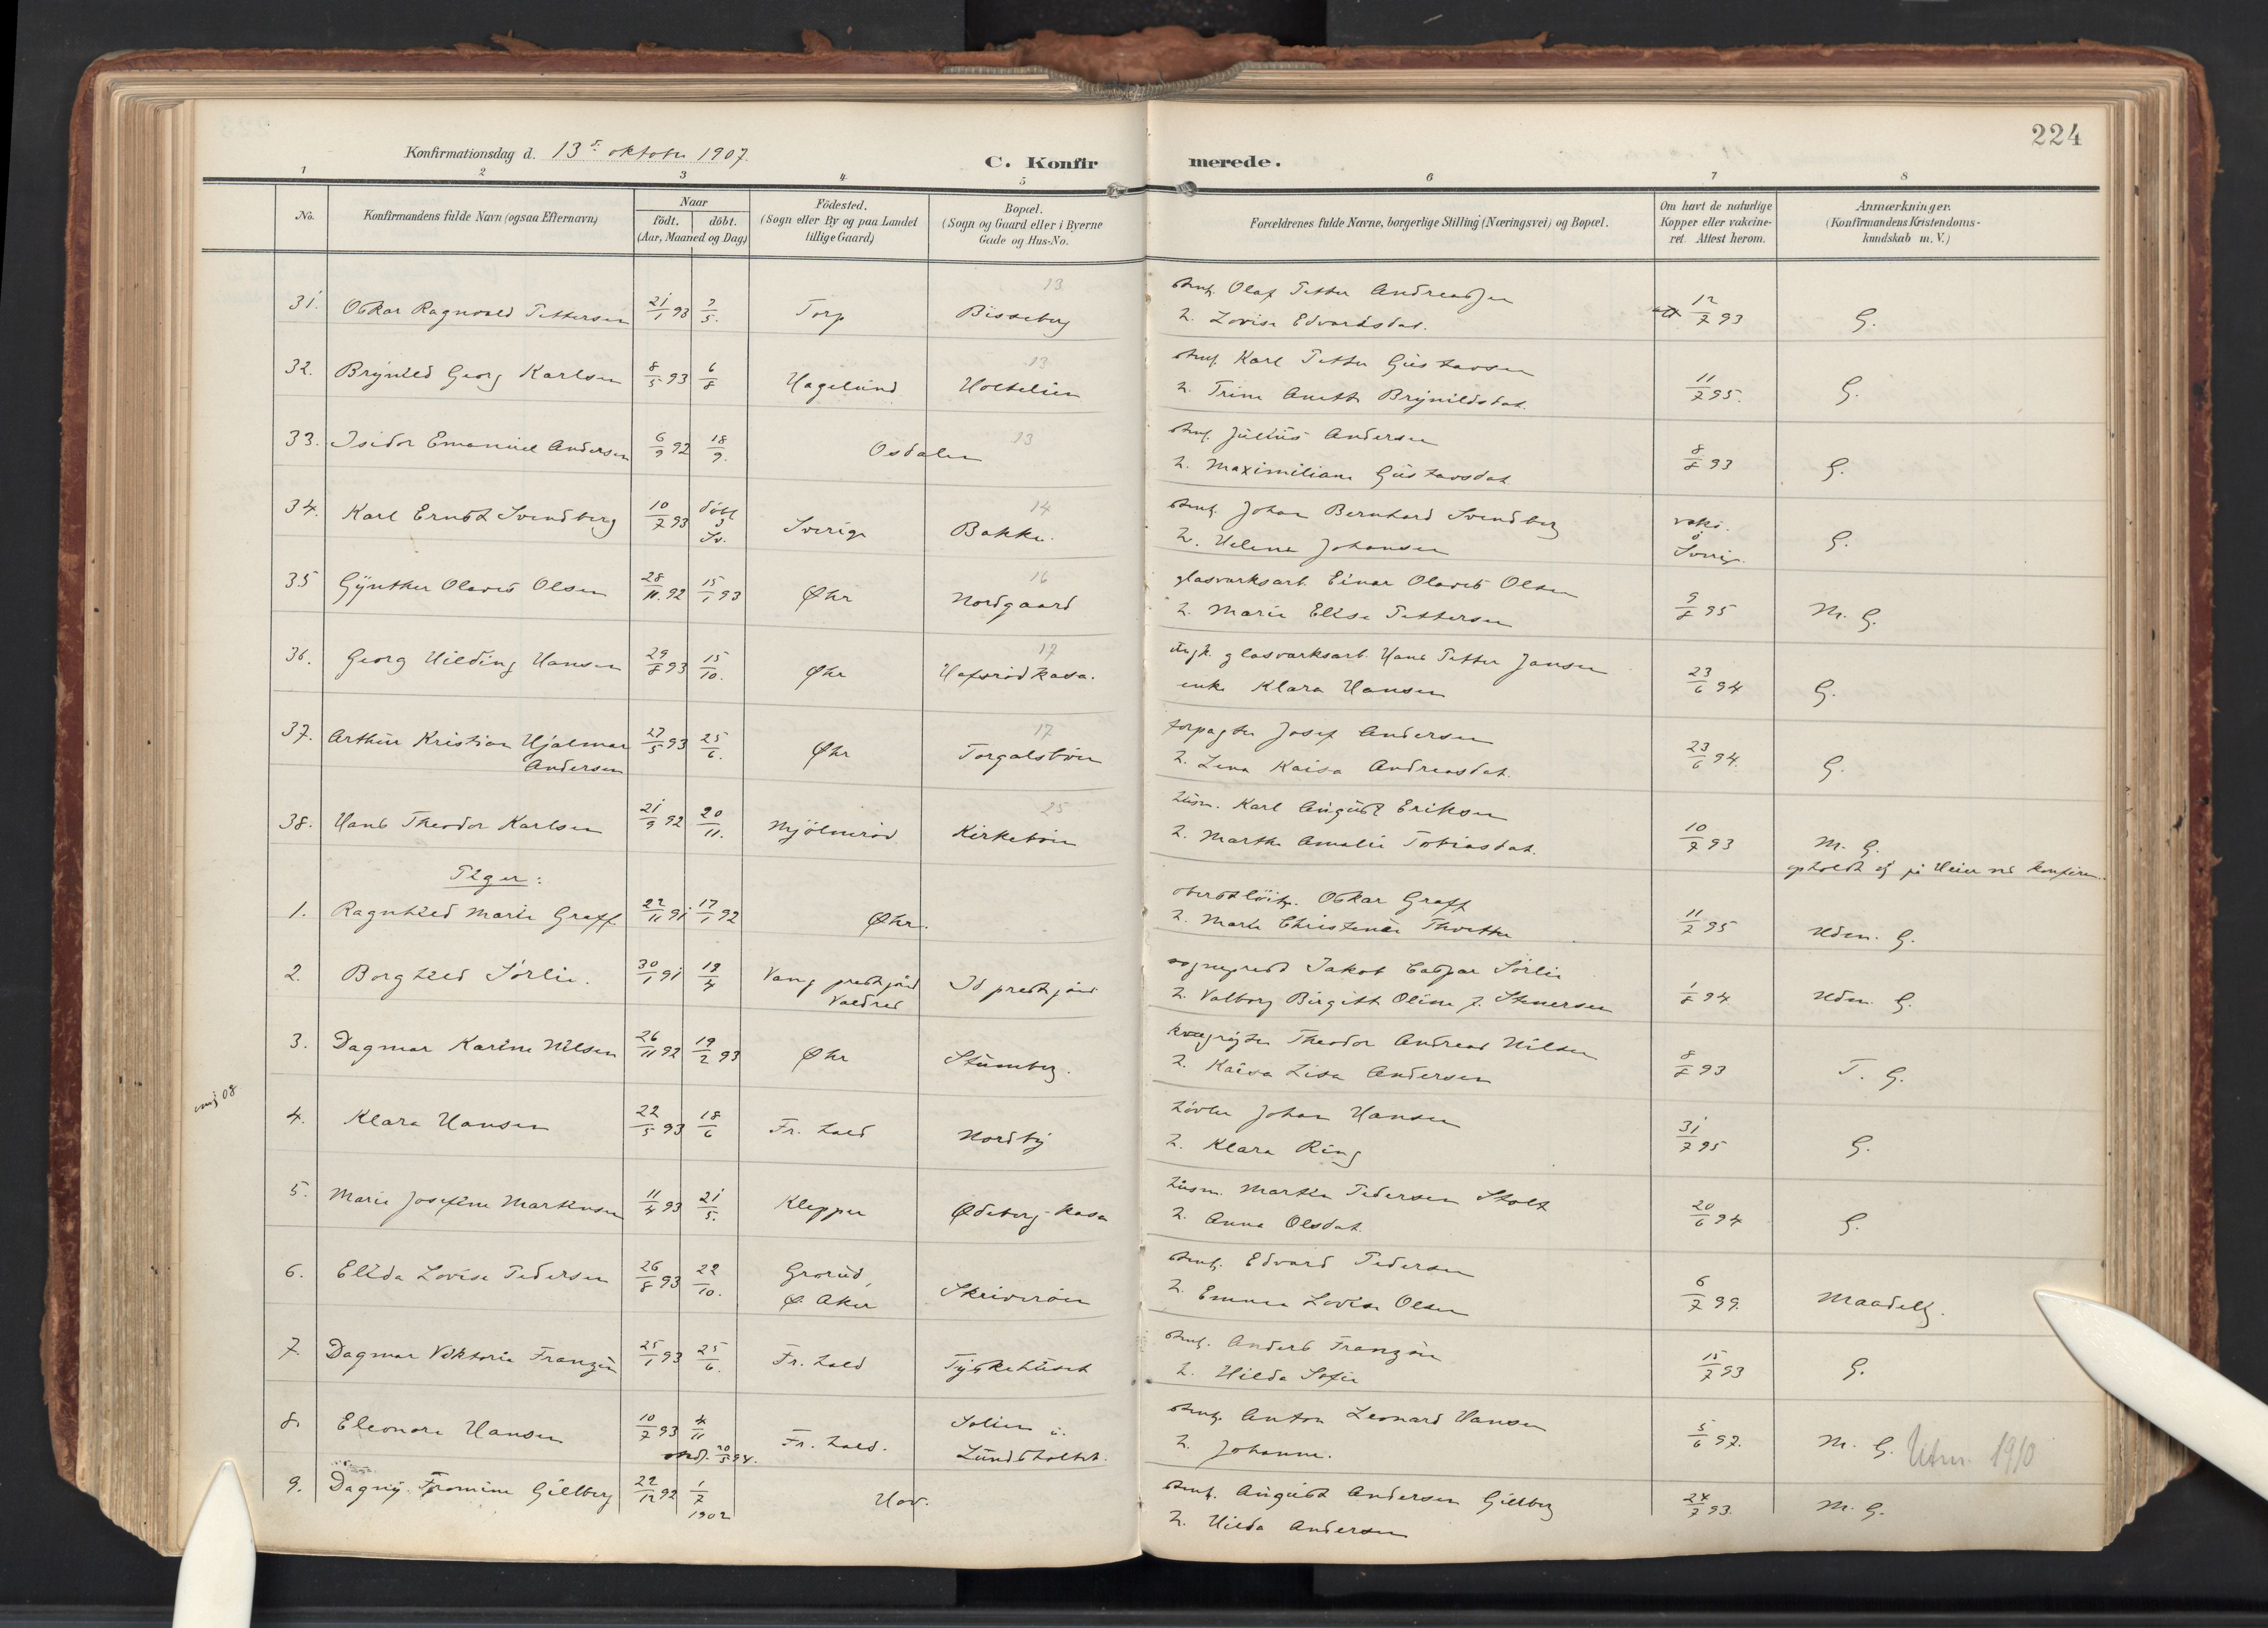 224
Konfirmationsdag d. 13de oktober 1907.
C. Konfirmerede.
1 2 3 4 5 6 7 8
No. Konfirmandens fulde Navn (ogsaa Efternavn) Naar födt. döbt. (Aar, Maaned og Dag) Födested. (Sogn eller By og paa Landet tillige Gaard) Bopæl. (Sogn og Gaard eller i Byerne Gade og Hus-No. Forældrenes fulde Navne, borgerlige Stilling (Næringsvei) og Bopæl. Om havt de naturlige Kopper eller vakcineret. Attest herom. Anmærkninger. (Konfirmandens Kristendomskundskab m. V.)
31. Oskar Ragnvald Pettersen 21/1 93 7/5. Torp Bisseberg 13 stenh. Olaf Petter Andreassen
h. Lovise Edvardsdat. att 12/7 93 G.
32. Brynild Georg Karlsen 8/5 93 6/8 Hagelund Holtelien 13 stenh. Karl Petter Gustavsen
h. Trine Anette Brynildsdat. 11/7 95. G.
33. Isidor Emanuel Andersen 6/9 92 18/9. Osdalen 13 stenh. Julius Andersen
h. Maximiliane Gustavsdat. 8/8 93 G.
34. Karl Ernst Svendberg 10/7 93 döbt i Sv. Sverige Bakke. 14 stenh. Johan Bernhard Svendberg
h. Helene Johansen vaks. i Sverige. G.
35 Gynther Olavus Olsen 28/11. 92 15/1 93 Øhr Nordgaard 16 glasverksarb. Einar Olavus Olsen
h. Marie Elise Pettersen 9/8 95 M. G.
36. Georg Hilding Hansen 29/8 93 15/10. Øhr Hafsrödkasa. 17 glasverksarb. Hans Petter Jansen
enke Klara Hansen 23/6 94 G.
37. Arthur Kristian Hjalmar Andersen 27/5 93 25/6. Øhr Torgalsböen 17 forpagter Josef Andersen
h. Lena Kaisa Andreasdat. 23/6 94. G.
38. Hans Theodor Karlsen 21/9 92 20/11. Mjölneröd Kirkeböen 25 husm. Karl August Eriksen
h. Marthe Amalie Tobiasdat. 10/7 93 M. G.
opholdt sig på Heien ved konfirm.
Piger:
1. Ragnhild Marie Graff 22/11 91 17/1 92 Øhr. oberstlöitn. Oskar Graff
h. Marie Christence 11/7 95 Udm. G.
2. Borghild Sörlie. 30/1 91 19/4 Vang prestgjæld Valdres Id prestgjæld sogneprest Jakob Caspar Sörlie
h. Valborg Birgitte Oline f. Stenersen 1/8 94 Udm. G.
3. Dagmar Karine Nilsen 26/11 92 19/2 93 Øhr Stumberg. Theodor Andreas Nilsen
h. Kaisa Lisa Andersen 8/8 93 T. G.
08
4. Klara Hansen 22/5 93 18/6 Fr.hald Nordby hövler Johan Hansen
h. Klara Ring 31/7 95 G.
5. Marie Josefine Martinsen 11/4 93 21/5. Klepper Ødeberg-kasa husm. Martin Pedersen Stolt
h. Anna Olsdat. 20/6 94 G.
6. Elida Lovise Pedersen 26/8 93 22/10. Grorud, Ø. Aker Skriveröen stenh. Edvard Pedersen
h. Emma Lovise Olsen 6/7 99. Maadelig.
7. Dagmar Viktoria Franzén 25/1 93 25/6. Fr.hald Tyskehuset stenh. Anders Franzén
h. Hilda Sofie 15/7 93 G.
8. Eleonore Hansen 10/7 93 4/11 Fr.hald. Solien u. Lundsholtet. stenh. Anton Leonard Hansen
h. Johanne. 5/6 97. M. G. Utm. 1910
stadf. 20/5 94.
9. Dagny Fromine Gillberg 22/12 92 1/7 1902 Hov. stenh. August Andersen Gillberg
h. Hilda Andersen 24/7 93. M. G.